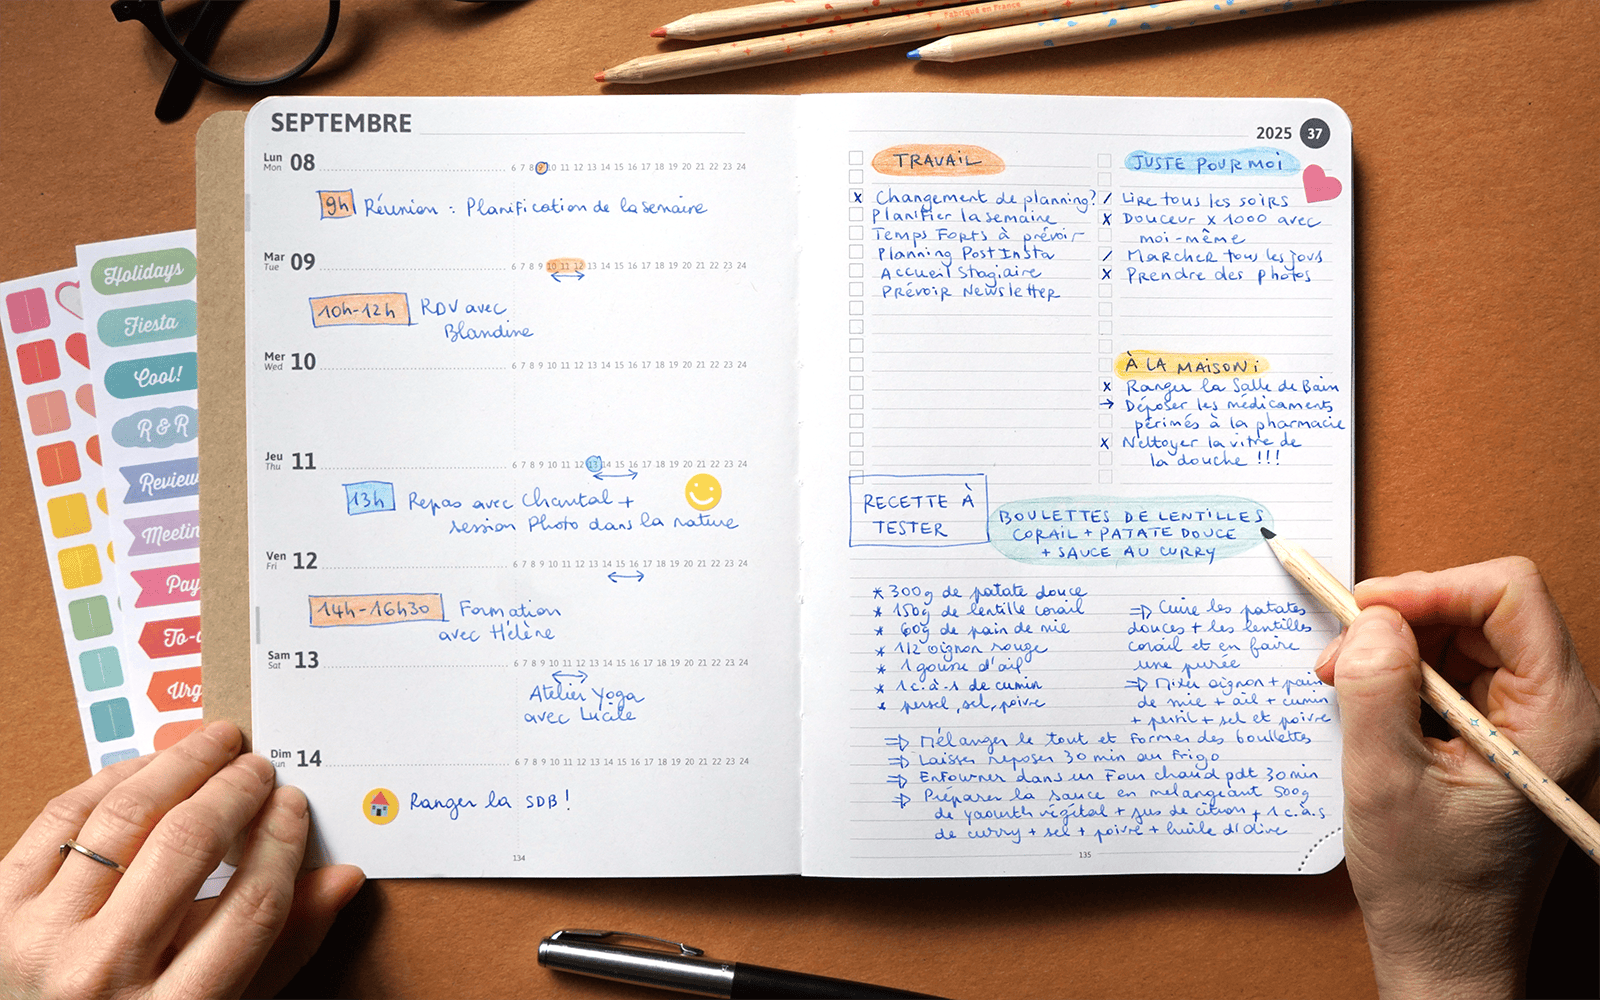 Fabriqué en France
SEPTEMBRE
Lun 08
Mon
6 7 8 9 10 11 12 13 14 15 16 17 18 19 20 21 22 23 24
9h Réunion : Planification de la semaine
Mar 09
Tue
6 7 8 9 10 11 12 13 14 15 16 17 18 19 20 21 22 23 24
10h-12h RDV avec
Blandine
Mer 10
Wed
6 7 8 9 10 11 12 13 14 15 16 17 18 19 20 21 22 23 24
Jeu 11
Thu
6 7 8 9 10 11 12 13 14 15 16 17 18 19 20 21 22 23 24
13h Repas avec Chantal +
session Photo dans la nature
Ven 12
Fri
6 7 8 9 10 11 12 13 14 15 16 17 18 19 20 21 22 23 24
14h-16h30 Formation
avec Hélène
Sam 13
Sat
6 7 8 9 10 11 12 13 14 15 16 17 18 19 20 21 22 23 24
Atelier Yoga
avec Lucile
Dim 14
Sun
6 7 8 9 10 11 12 13 14 15 16 17 18 19 20 21 22 23 24
Ranger la SDB !
134
2025 37
TRAVAIL
x Changement de planning?
Planifier la semaine
Temps Forts à prévoir
Planning Post Insta
Accueil Stagiaire
Prévoir Newsletter
JUSTE POUR MOI
/ Lire tous les soirs
x Douceur x 1000 avec
moi-même
/ Marcher tous les jours
x Prendre des photos
À LA MAISON :
x Ranger la Salle de Bain
→ Déposer les médicaments
périmés à la pharmacie
x Nettoyer la vitre de
la douche !!!
RECETTE À
TESTER
BOULETTES DE LENTILLES
CORAIL + PATATE DOUCE
+ SAUCE AU CURRY
* 300g de patate douce
* 150g de lentille corail
* 60g de pain de mie
* 1/2 oignon rouge
* 1 gousse d'ail
* 1 c.à.s de cumin
* persil, sel, poivre
⇒ Cuire les patates
douces + les lentilles
corail et en faire
une purée
⇒ Mixer oignon + pain
de mie + ail + cumin
+ persil + sel et poivre
⇒ Mélanger le tout et former des boulettes
⇒ Laisser reposer 30 min au Frigo
⇒ Enfourner dans un Four chaud pdt 30 min
⇒ Préparer la sauce en mélangeant 500g
de yaourth végétal + jus de citron + 1 c.a.s
de curry + sel + poivre + huile d'olive
135
Holidays
Fiesta
Cool!
R & R
Review
Meetin
Pay
To-
Urg